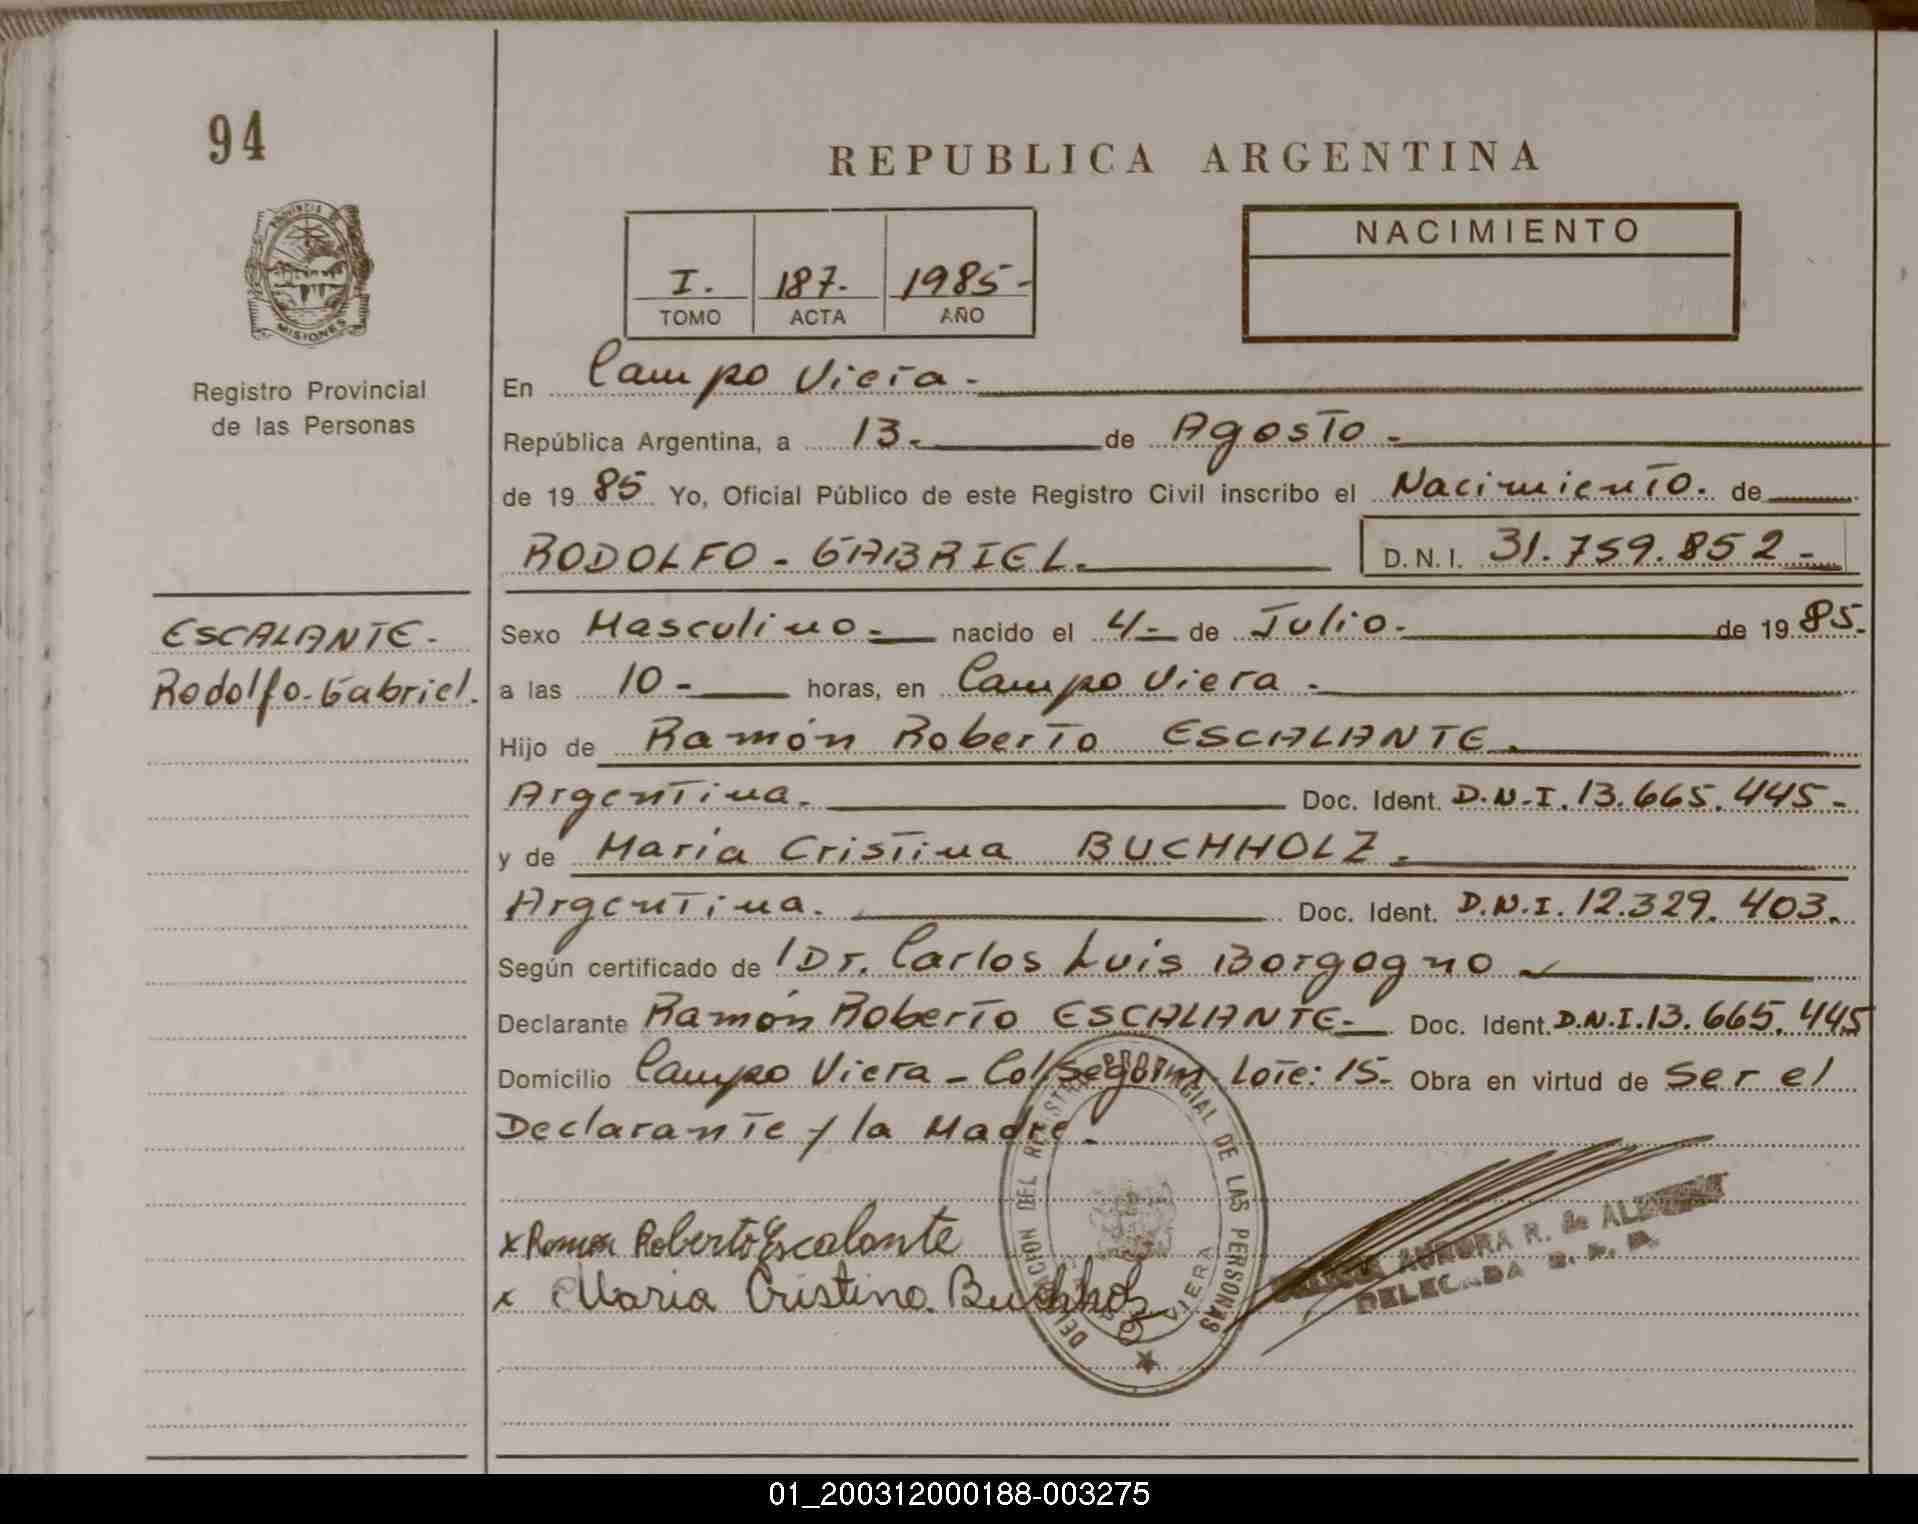 94
REPUBLICA ARGENTINA
PROVINCIA DE
MISIONES
Registro Provincial
de las Personas
I. 187. 1985-
TOMO ACTA AÑO
NACIMIENTO
En Campo Viera.
República Argentina, a 13. de Agosto.
de 19 85 Yo, Oficial Público de este Registro Civil inscribo el Nacimiento. de
RODOLFO - GABRIEL. D.N.I. 31.759.852-
ESCALANTE-
Rodolfo-Gabriel.
Sexo Masculino- nacido el 4- de Julio. de 19 85-
a las 10- horas, en Campo Viera.
Hijo de Ramón Roberto ESCALANTE.
Argentina. Doc. Ident. D.N.I. 13.665.445-
y de María Cristina BUCHHOLZ.
Argentina. Doc. Ident. D.N.I. 12.329.403.
Según certificado de Dr. Carlos Luis Borgogno
Declarante Ramón Roberto ESCALANTE- Doc. Ident. D.N.I. 13.665.445
Domicilio Campo Viera - Col. Lote: 15- Obra en virtud de Ser el
Declarante y la Madre.
DEL REGISTRO PROVINCIAL DE LAS PERSONAS
VIERA
x Ramon Roberto Escalante
x Maria Cristina Buchholz
AURORA R. de
DELEGADA
01_200312000188-003275